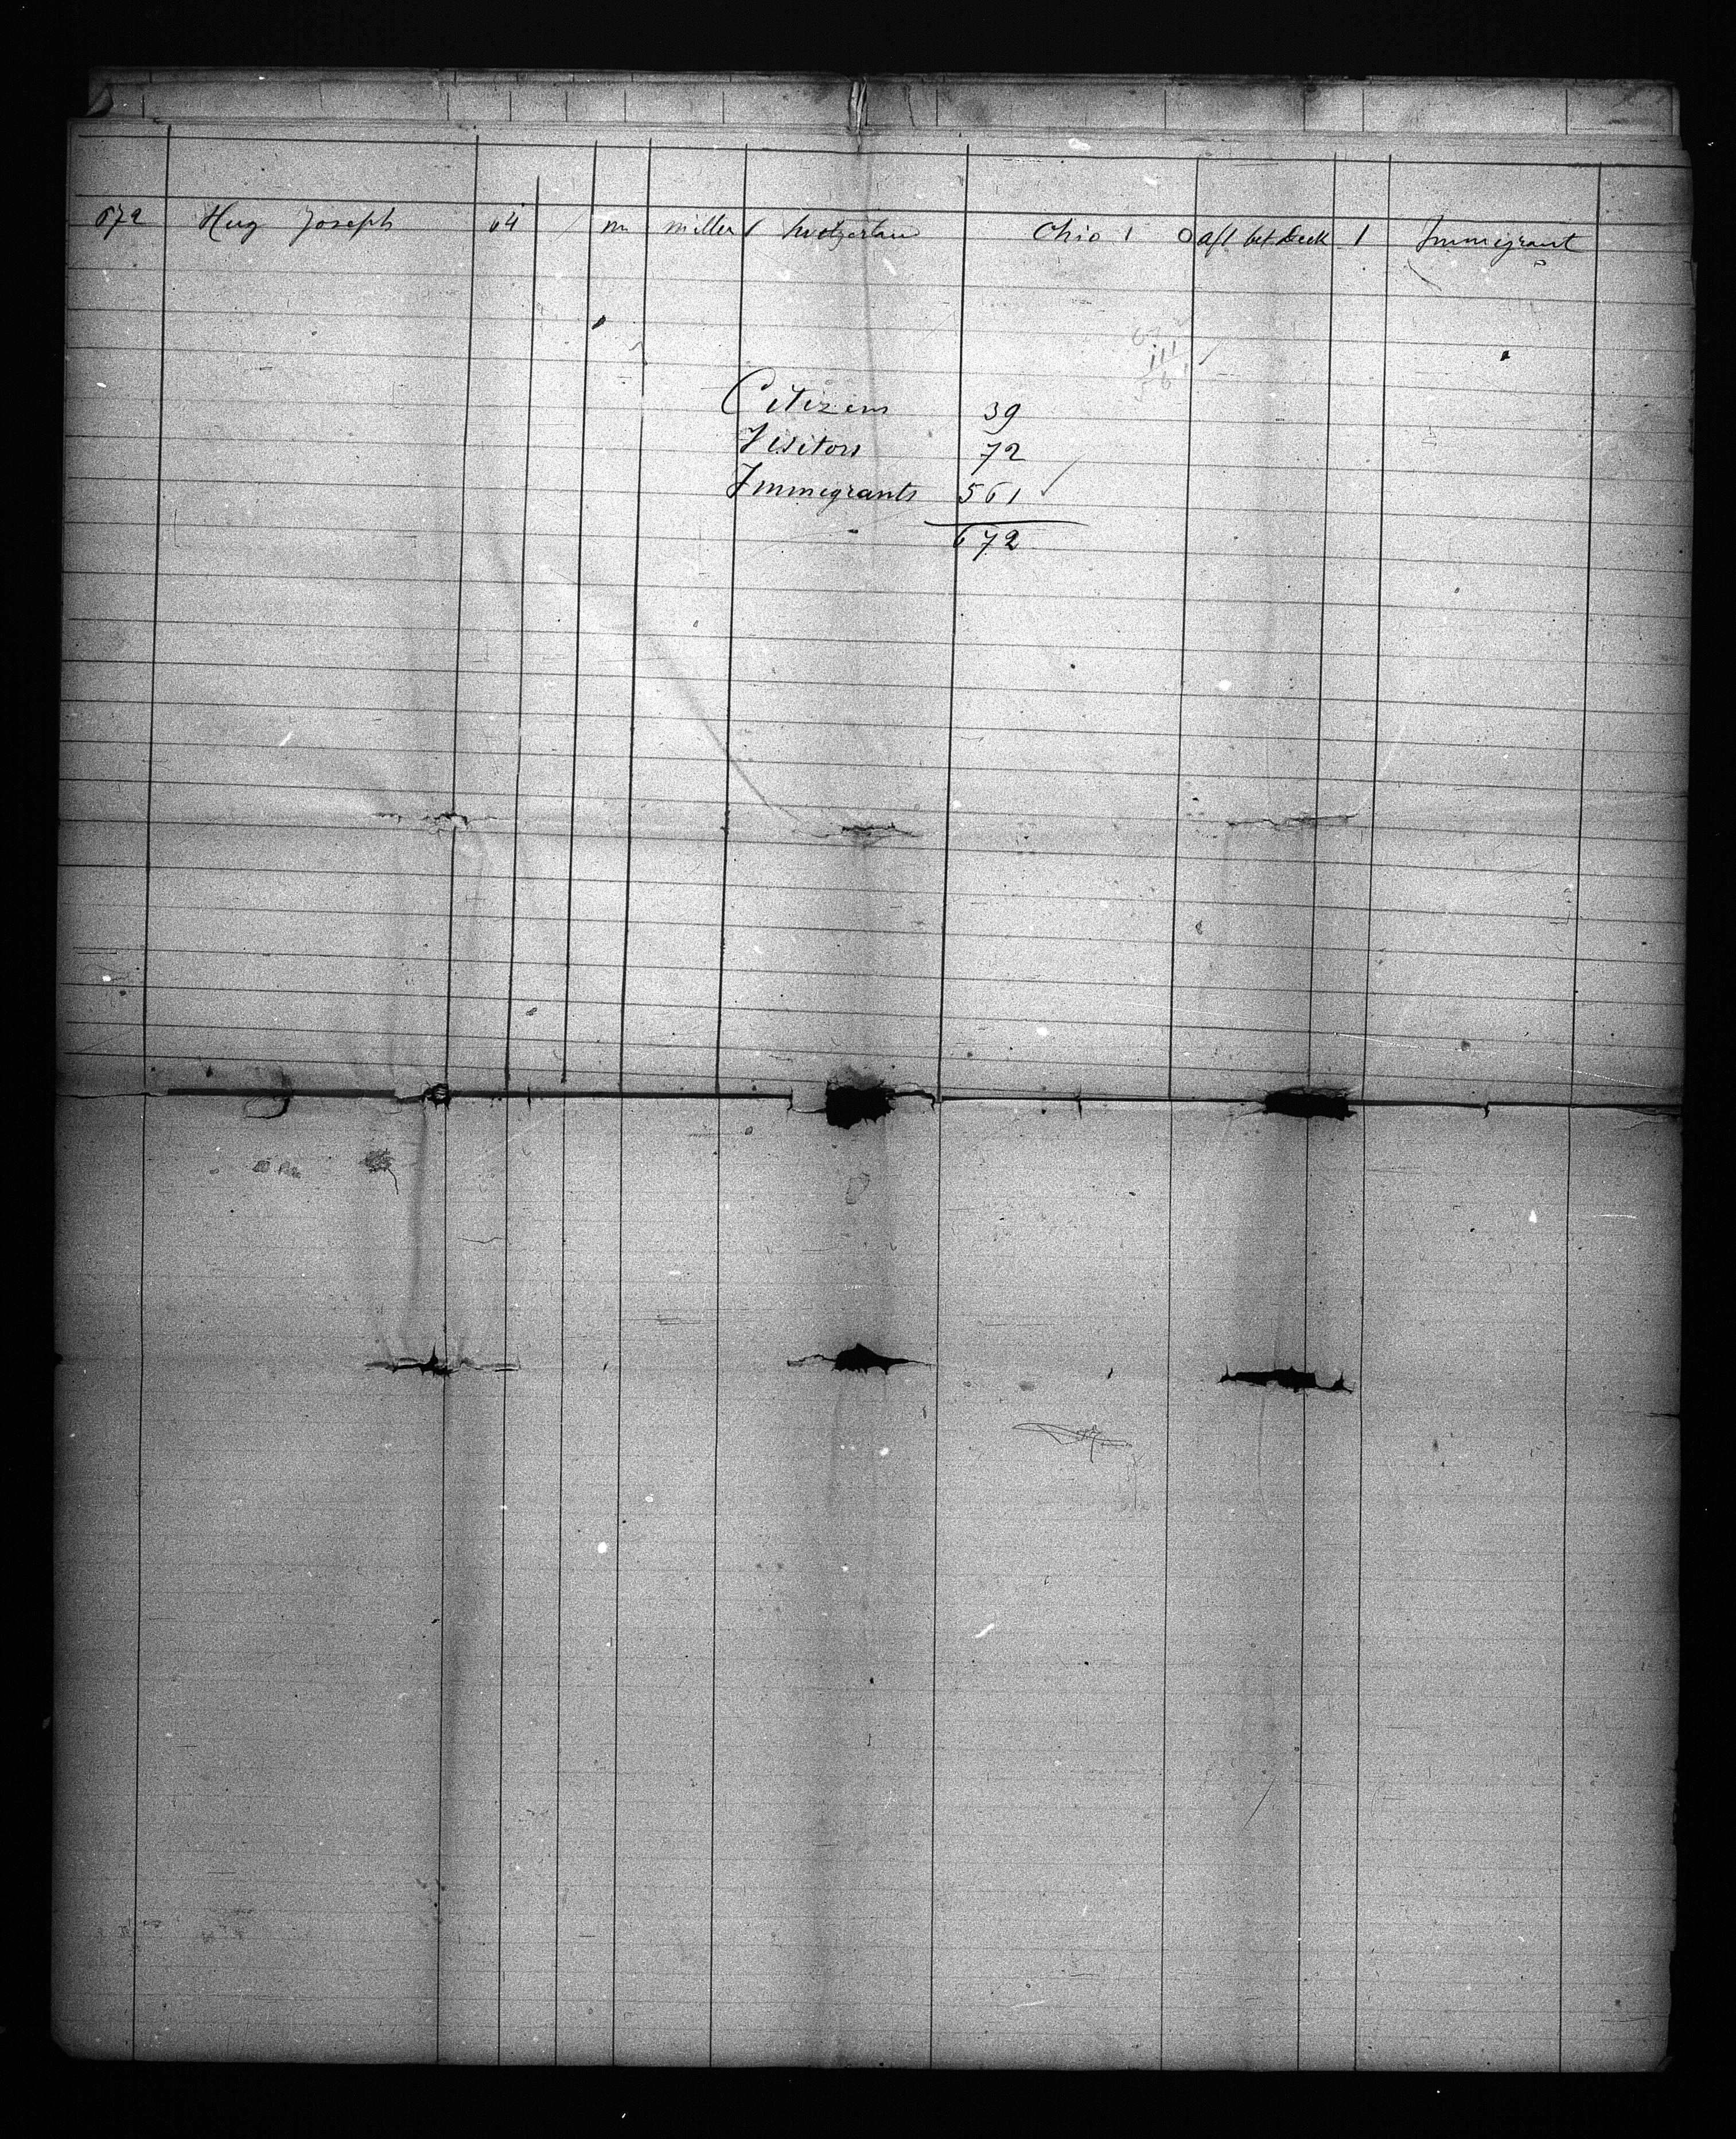 672 Hug Joseph 64 / m miller / Switzerland Ohio 1 0 aft bet Deck 1 Immigrant
111
561
Citizens 39
Visitors 72
Immigrants 561 ✓
672